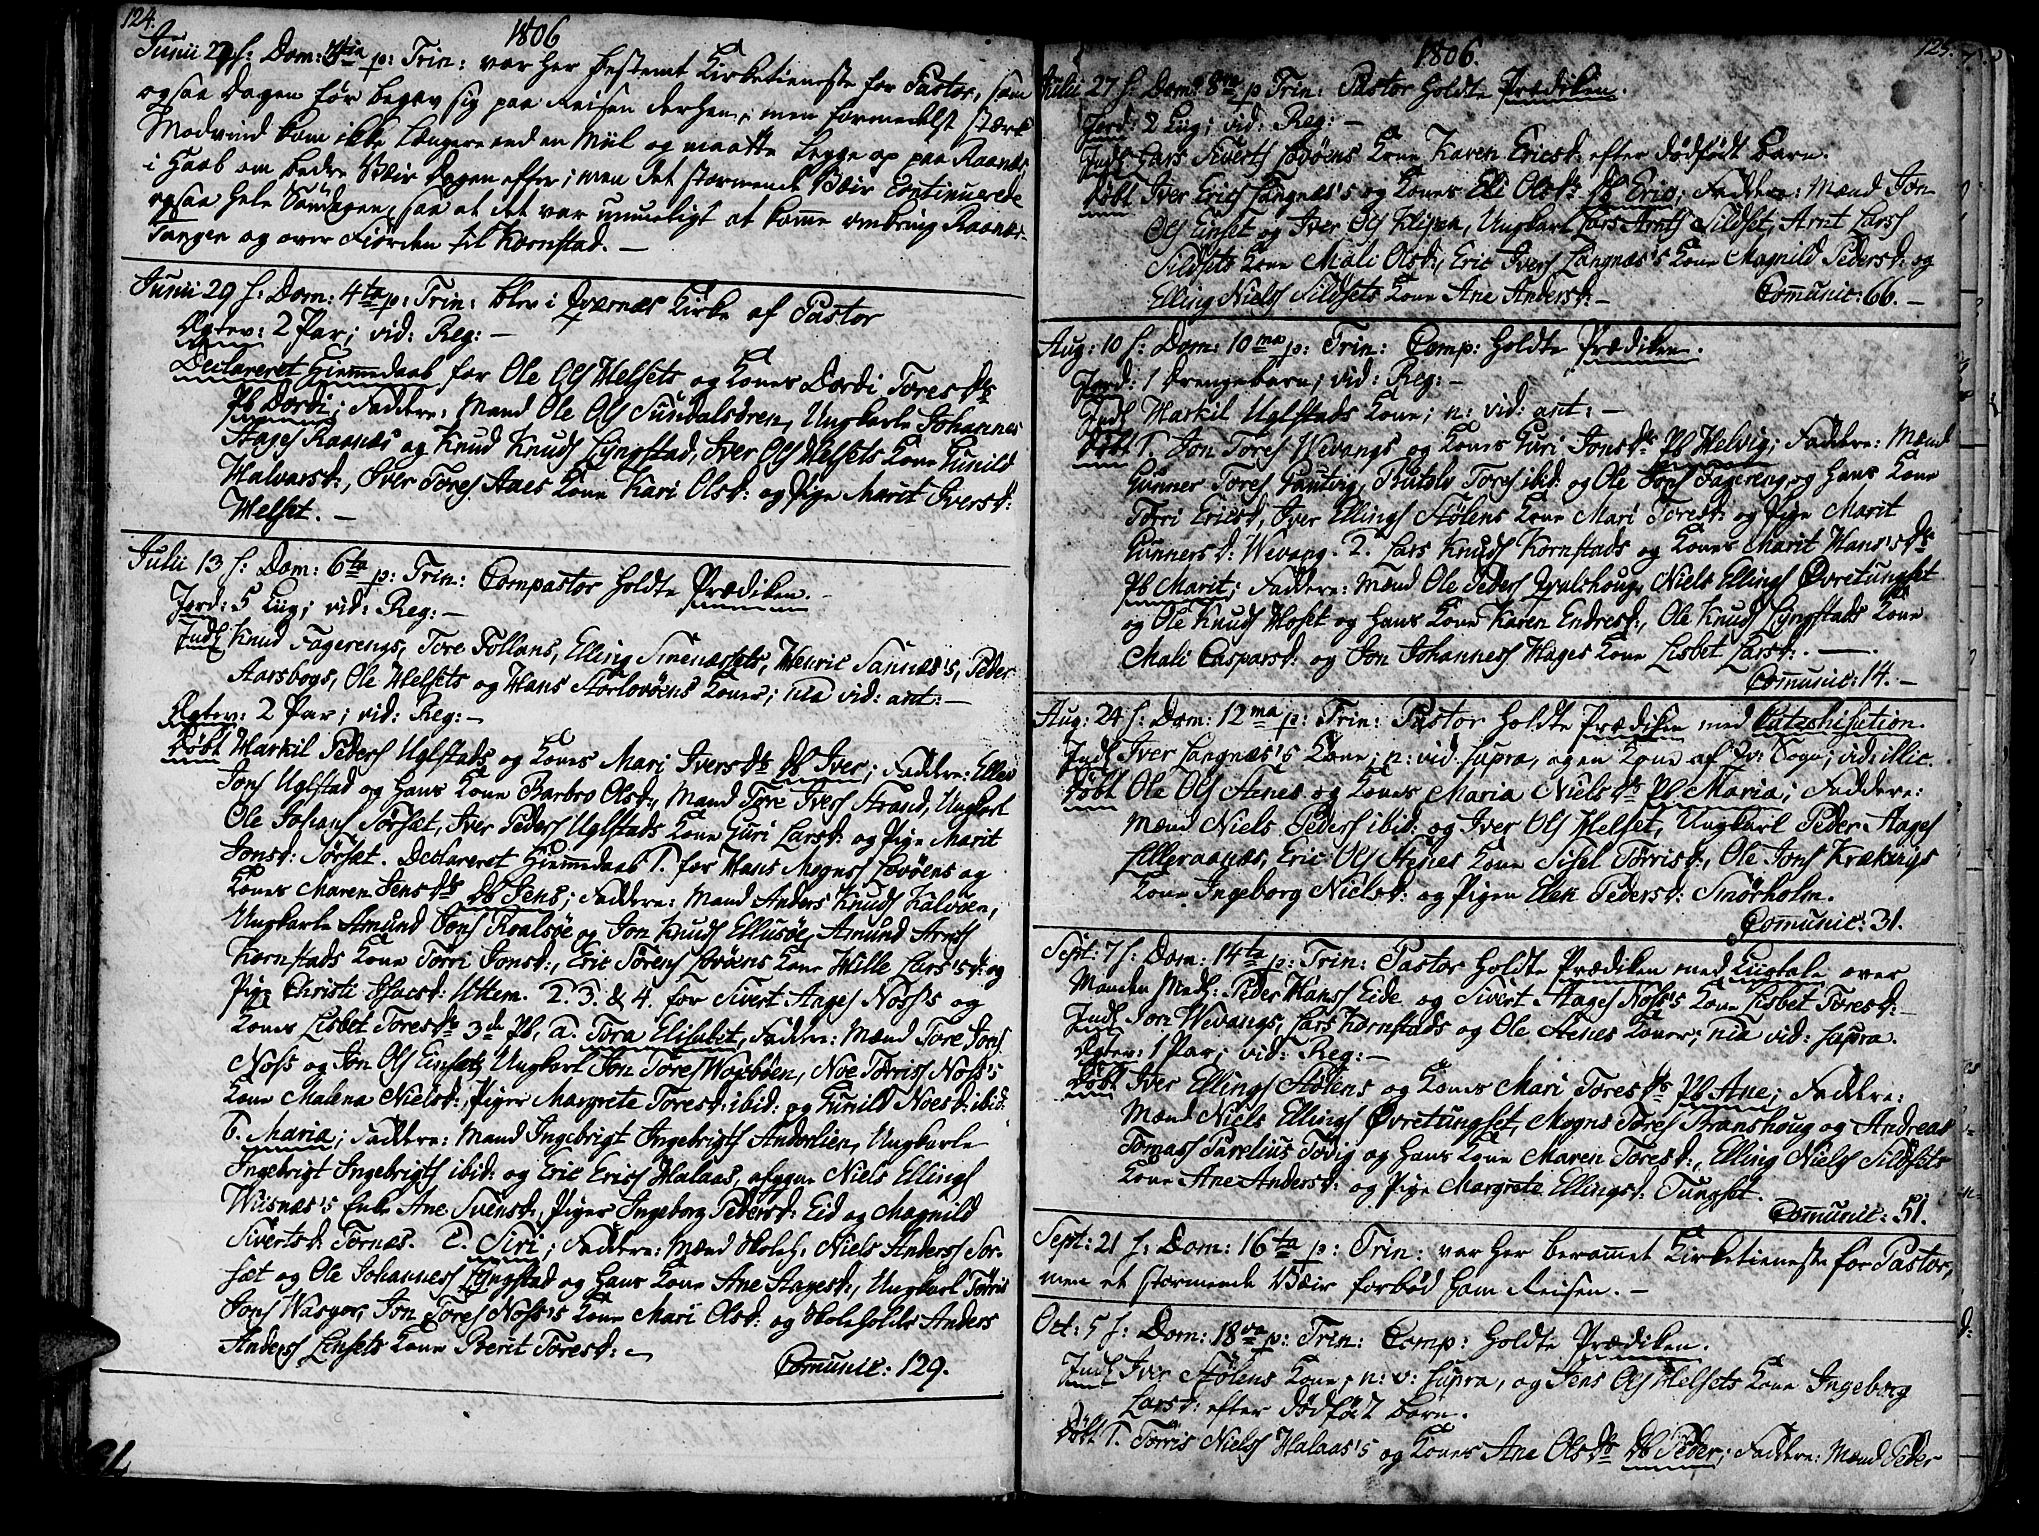 124.
1806
Junii 29 f: Dom: 4ta p: Trin: var her bestemt Kirketieneste for Pastor, som
ogsaa Dagen før begav sig paa Reisen derhen; men formedelst stærk
Modvind kom ikke længere end en Miil og maatte legge op paa Raanæs,
i Haab om bedre Væir Dagen efter; men det stormende Væir continuerede
ogsaa hele Søndagen, saa at det var umueligt at kome omkring Raanæs-
Tangen og over Fiorden til Kornstad. —
Junii 29 f: Dom: 4ta p: Trin: blev i Qværnæs Kirke af Pastor
Ægtev: 2 Par; vid: Reg: —
Declareret Hiemedaab for Ole Ols Helsets og Kones Dordi Toresdr
pb Dordi; Faddere: Mænd Ole Ols Sundalsøren, Ungkarle Johannes
Aages Raanæs og Knud Knuds Lyngstad, Iver Ols Helsets Kone Gunild
Halvarsd:, Iver Tores Aaes Kone Kari Olsd: og Pige Marit Iversd:
Helset. —
Julii 13 f: Dom: 6ta p: Trin: Compastor holdte Prædiken. —
Jord: 5 Liig; vid: Reg: —
Indl Knud Fagerengs, Tore Follans, Elling Sinenæssets, Henric Sannæs's, Peder
Aarsbogs, Ole Helsets og Hans Storlovöens Koner; nia vid: ant: —
Ægtev: 2 Par; vid: Reg: —
Döbt Harkil Peders Uglstads og Kones Mari Iversdr pb Iver; Faddere: Ellev
Jons Uglstad og hans Kone Barbro Olsd:, Mænd Tore Ivers Strand, Ungkarl
Ole Johans Sörset, Iver Peders Uglstads Kone Guri Larsd: og Pige Marit
Jonsd: Sørsæt. Declareret Hiemedaab 1. for Hans Mogns Lovöens og
Kones Maren Jensdr pb Jens; Faddere: Mænd Anders Knuds Kalvöen,
Ungkarle Amund Jons Roalsöe og Jon Knuds Ellusöe, Amund Arnts
Kornstads Kone Torri Jonsd:, Eric Torens Lovöens Kone Hille Lars'sd: og
Pige Christi Isacsd: Uttem. 2. 3. & 4. for Sivert Aages Noss's og
Kones Lisbet Toresdr 3de pb, a. Tora Elisabet, Faddere: Mænd Tore Jons
Noss og Jon Ols Einset, Ungkarl Jon Tores Waagböen, Noe Torris Noss's
Kone Malena Nielsd:, Piger Margrete Toresd: ibid: og Gunild Noesd: ibid:
b. Maria; Faddere: Mænd Ingebrigt Ingebrigts Anderlien, Ungkarle
Ingebrigt Ingebrigts ibid: og Eric Erics Halaas, afgagne Niels Ellings
Wisnæs's Enke Ane Svensd:, Piger Ingeborg Pedersd: Eid og Magnild
Sivertsd: Tornæs. c. Siri; Faddere: Mænd Skoleh: Niels Anders Sor-
sæt og Ole Johannes Lyngstad og hans Kone Ane Aagesd:, Ungkarl Torris
Jons Wasgor, Jon Tores Noss's Kone Mari Olsd: og Skoleholder Anders
Anders Linsets Kone Berit Toresd: —
Comunic: 129.
125.
1806.
Julii 27 f: Dom: 8va p Trin: Pastor holdte Prædiken.
Jord: 2 Liig; vid: Reg: —
Indl Lars Siverts Lovöens Kone Karen Ericsd: efter dödfödt Barn.
Döbt Iver Erics Langnæs's og Kones Eli Olsdr pb Eric; Faddere: Mænd Jon
Ols Einset og Iver Ols Klipen, Ungkarl Lars Arnts Sildset, Arnt Lars
Sildsets Kone Mali Olsd:, Eric Ivers Langnæs's Kone Magnild Pedersd: og
Elling Niels Sildsets Kone Ane Andersd: —
Comunic: 66. —
Aug: 10 f: Dom: 10ma p: Trin: Comp: holdte Prædiken.
Jord: 1 Drengebarn; vid: Reg: —
Indl Harkil Uglstads Kone; n: vid: ant: —
Döbt 1. Jon Tores Wevangs og Kones Guri Jonsdr pb Helvig; Faddere: Mænd
Gunner Tores Gautvig, Rutslv Tores ibid: og Ole Jons Fagereng og hans Kone
Torri Ericsd, Iver Ellings Stölens Kone Mari Toresd: og Pige Marit
Gunnersd: Wevang. 2. Lars Knuds Kornstads og Kones Marit Hans'sdr
pb Marit; Faddere: Mænd Ole Peders Qvalshoug, Niels Ellings Øvretungset
og Ole Knuds Moset og hans Kone Karen Endresd:, Ole Knuds Lyngstads Kone
Mali Caspersd: og Jon Johannes Hages Kone Lisbet Larsd:. —
Comunic: 14. —
Aug: 24 f: Dom: 12ma p: Trin: Pastor holdte Prædiken med Catechisation.
Indl Iver Langnæs's Kone; n: vid: supra, og en Kone af Qv: Sogn; vid: illic.
Döbt Ole Ols Stenes og Kones Maria Nielsdr pb Maria; Faddere:
Mænd Niels Peders ibid: og Iver Ols Helset, Ungkarl Peder Aages
Lilleraanæs, Eric Ols Stenes Kone Sisel Torrisd:, Ole Jons Krækvigs
Kone Ingeborg Nielsd: og Pigen Elen Pedersd: Smørholm.
Comunic: 31.
Sept: 7 f: Dom: 14ta p: Trin: Pastor holdte Prædiken med Liigtale over
Manden Medh: Peder Hans Eide og Sivert Aages Noss's Kone Lisbet Toresd: —
Indl Jon Wevangs, Lars Kornstads og Ole Stenes Koner; nia vid: supra.
Ægtev: 1 Par; vid: Reg: —
Döbt Iver Ellings Stölens og Kones Mari Toresdr pb Ane; Faddere:
Mænd Niels Ellings Øvretungset, Mogns Tores Stranshoug og Andreas
Tornas Parelius Tövig og hans Kone Maren Toresd:, Elling Niels Sildsets
Kone Ane Andersd: og Pige Margrete Ellingsd: Tungset.
Comunic: 51.
Sept: 21 f: Dom: 16ta p: Trin: var her berammet Kirketieneste for Pastor,
men et stormende Væir forbød ham Reisen. —
Oct: 5 f: Dom: 18va p: Trin: Comp: holdte Prædiken.
Indl Iver Stölens Kone; n: v: supra, og Jens Ols Helsets Kone Ingeborg
Larsd: efter dödfödt Barn.
Döbt 1. Torris Niels Halaas's og Kones Ane Olsdr pb Peder; Faddere: Mænd Peder